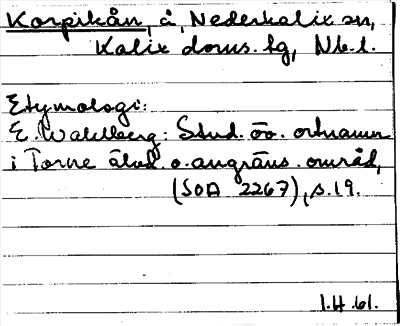 Korpikån, å, Nederkalix sn,
Kalix doms. tg, Nb. l.
Etymologi:
E. Wahlberg: Stud. öv. ortnamn
i Torne älvd. o. angräns. område,
(SOA 2267), s. 19.
1.H.61.